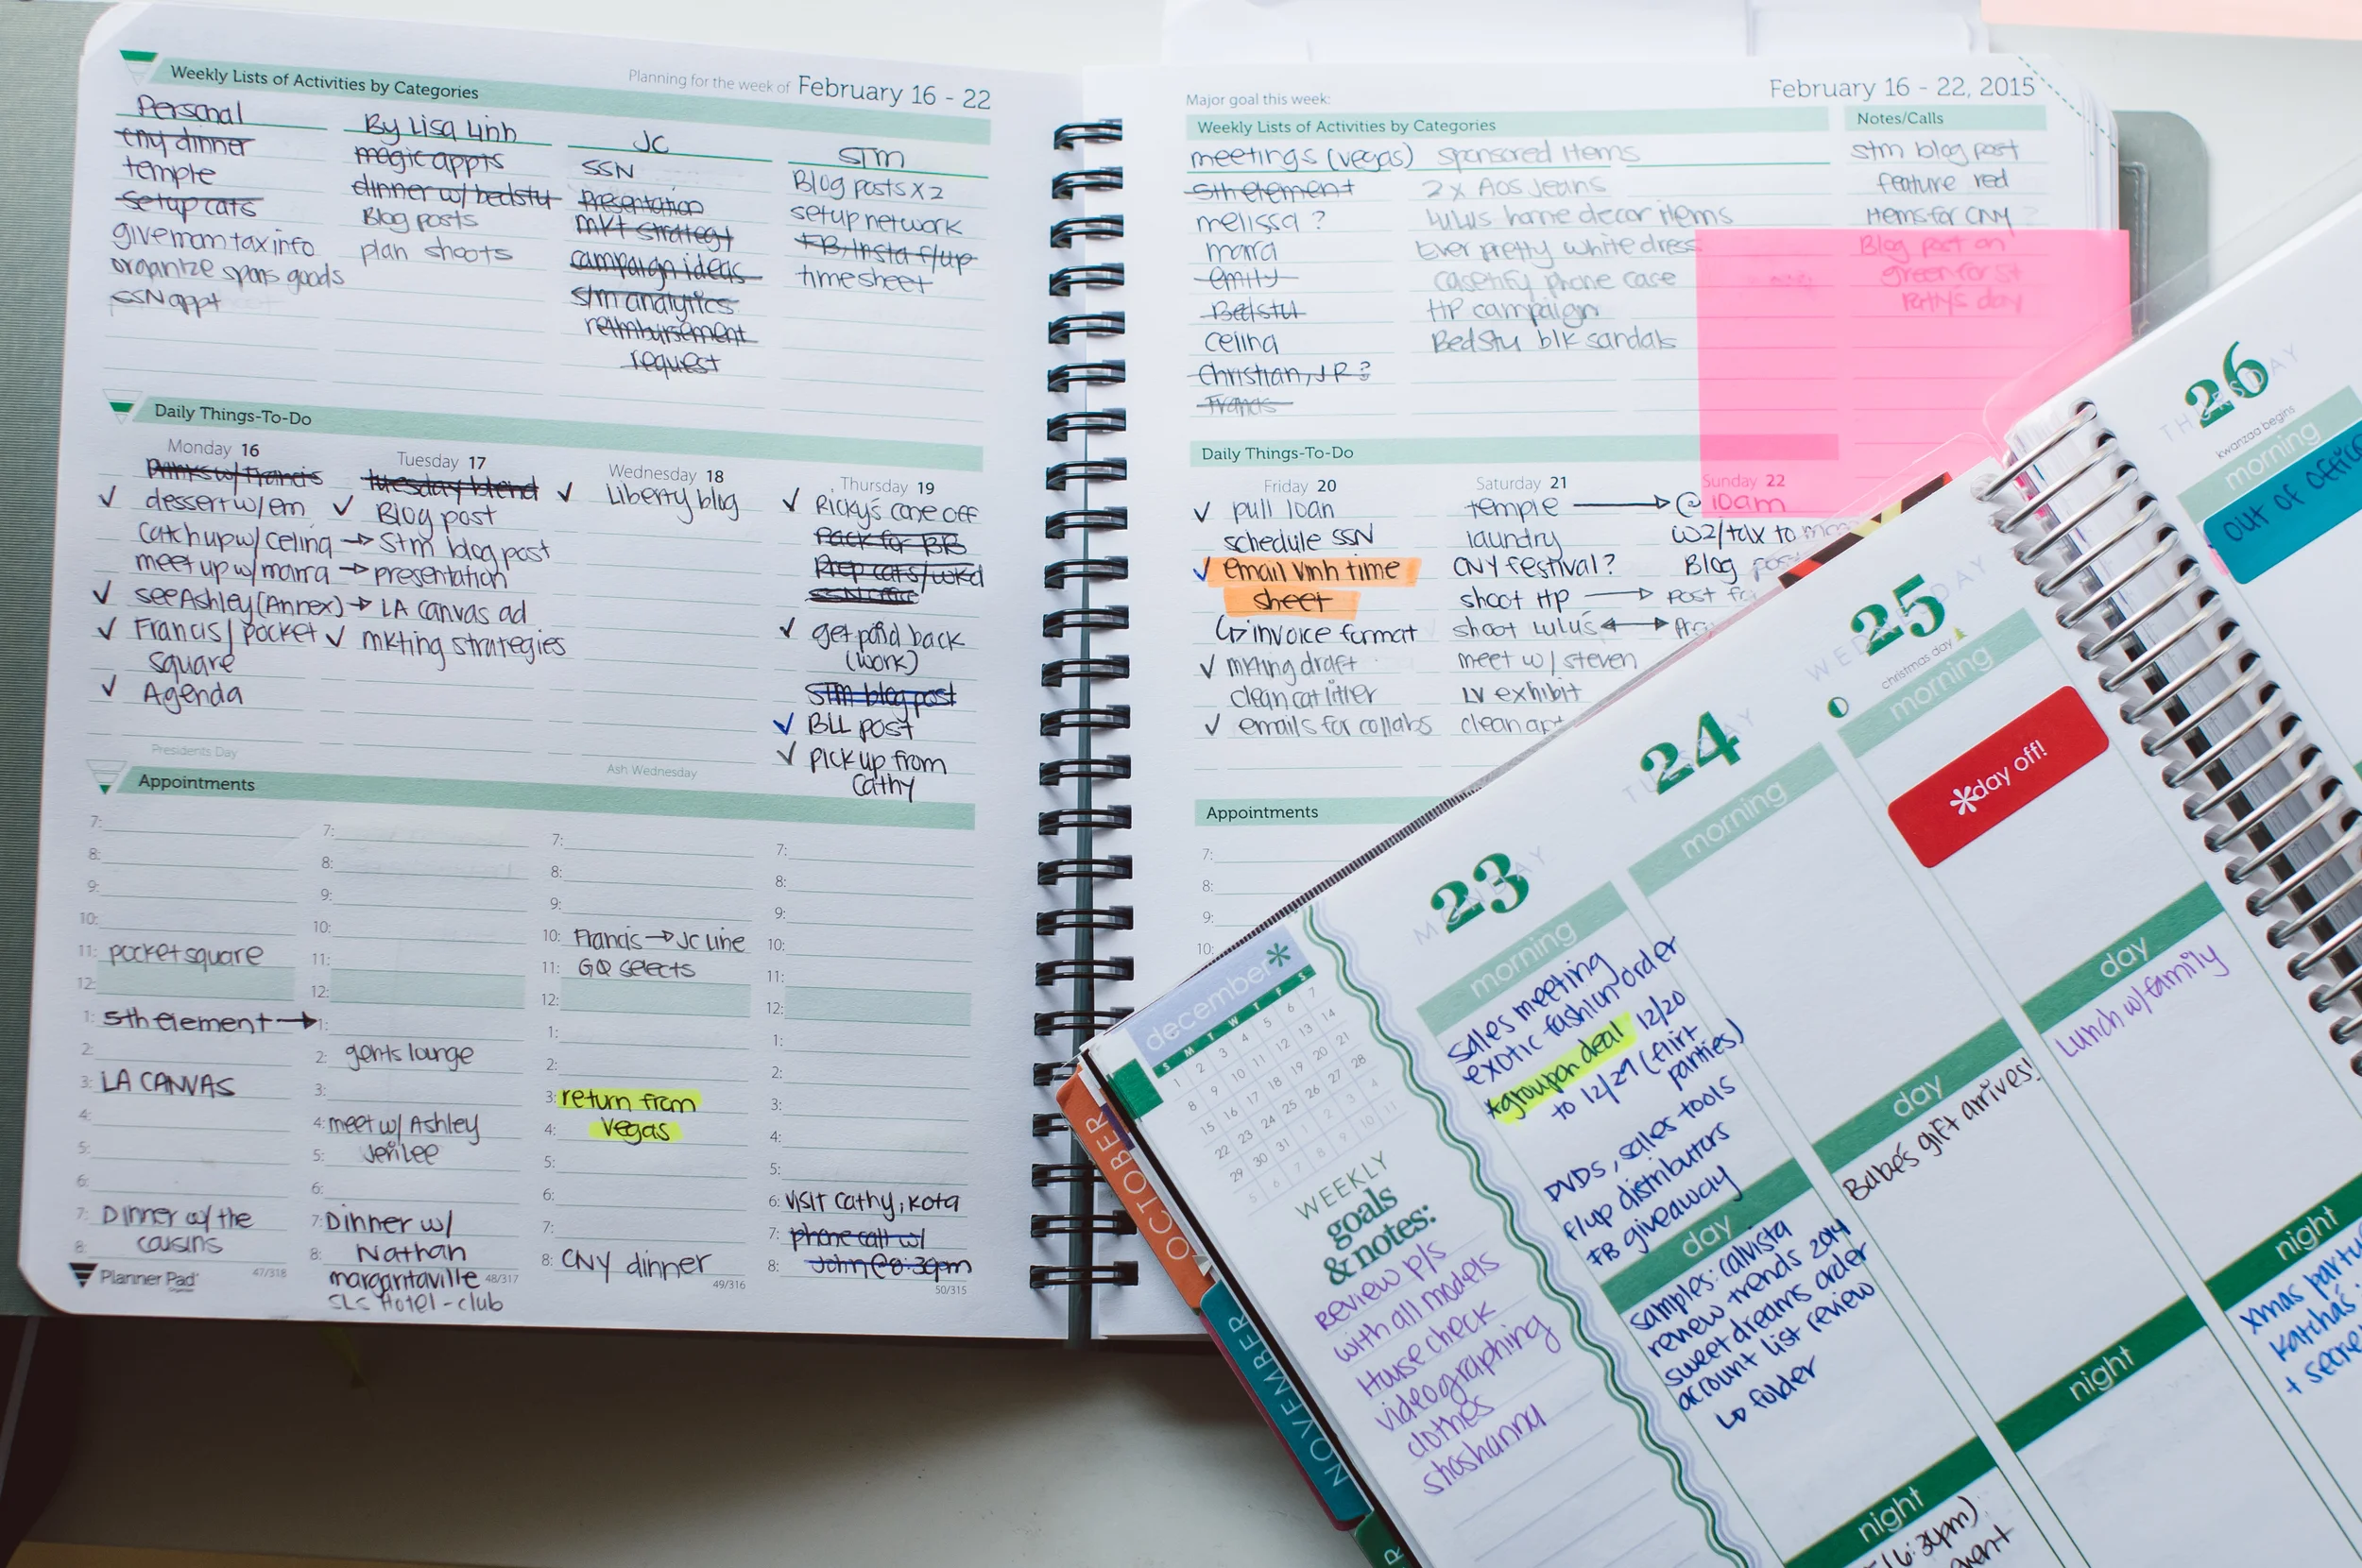 Weekly Lists of Activities by Categories
Planning for the week of February 16 - 22
Personal
cny dinner
temple
setup cats
give mom tax info
organize spons goods
SSN appt
By Lisa Linh
magic appts
dinner w/ bedstu
Blog posts
plan shoots
JC
SSN
Presentation
mkt strategy
campaign ideas
stm analytics
reimbursement
request
STM
Blog posts x 2
setup network
FB, Insta f/up
timesheet
Daily Things-To-Do
Monday 16
Drinks w/ Francis
✓ dessert w/ em
catch up w/ celina →
meet up w/ marra →
✓ see Ashley (Annex) →
✓ Francis / pocket
square
✓ Agenda
Presidents Day
Tuesday 17
tuesday blend
✓ Blog post
stm blog post
presentation
LA canvas ad
✓ mkting strategies
Wednesday 18
✓ Liberty blog
Ash Wednesday
Thursday 19
✓ Ricky's cone off
Pack for BB
Prep cats/wknd
✓ get paid back
(work)
STM blog post
✓ BLL post
✓ pick up from
Cathy
Appointments
7:
8:
9:
10:
11: pocket square
12:
1: 5th element →
2:
3: LA CANVAS
4:
5:
6:
7: Dinner w/ the
8: cousins
Planner Pad
47/318
7:
8:
9:
10:
11:
12:
1:
2: gents lounge
3:
4: meet w/ Ashley
5: Jerilee
6:
7: Dinner w/
8: Nathan
margaritaville 48/317
SLS Hotel - club
7:
8:
9:
10: Francis → JC line
11: GQ selects
12:
1:
2:
3: return from
4: vegas
5:
6:
7:
8: CNY dinner
49/316
7:
8:
9:
10:
11:
12:
1:
2:
3:
4:
5:
6: visit cathy, kota
7: phone call w/
8: John @ 8:30pm
50/315
Major goal this week:
February 16 - 22, 2015
Weekly Lists of Activities by Categories
Notes/Calls
meetings (vegas)
5th element
melissa ?
marra
emily
Bedstu
celina
Christian, JR ?
Francis
sponsored items
2 x AOS Jeans
lulus home decor items
Ever pretty white dress
casetify phone case
HP campaign
Bedstu blk sandals
stm blog post
feature red
items for CNY ?
Blog post on
green for st
Patty's day
Daily Things-To-Do
Friday 20
✓ pull loan
schedule SSN
✓ email vinh time
sheet
↳ invoice format
✓ mkting draft
clean cat litter
✓ emails for collabs
Saturday 21
temple →
laundry
CNY festival?
shoot HP →
shoot lulus ↔
meet w/ steven
LV exhibit
clean apt
Sunday 22
@ 10am
W2/tax to mom
Blog
post
Appointments
7:
8:
9:
10:
OCTOBER
NOVEMBER
december*
S M T W T F S
1 2 3 4 5 6 7
8 9 10 11 12 13 14
15 16 17 18 19 20 21
22 23 24 25 26 27 28
29 30 31 1 2 3 4
5 6 7 8 9 10 11
WEEKLY
goals
& notes:
Review p/s
with all models
House check
videographing
clothes
shoshanna
23
MONDAY
morning
sales meeting
exotic fashion order
*groupon deal 12/20
to 12/29 (flirt
panties)
DVDs, sales tools
f/up distributors
FB giveaway
day
samples: calvista
review trends 2014
sweet dreams order
account list review
↳ folder
night
24
TUESDAY
morning
day
Babe's gift arrives!
night
(6:30pm)
25
WEDNESDAY
christmas day
morning
*day off!
day
Lunch w/ family
night
xmas party
katcha's
+ secre
26
THURSDAY
kwanzaa begins
morning
out of office